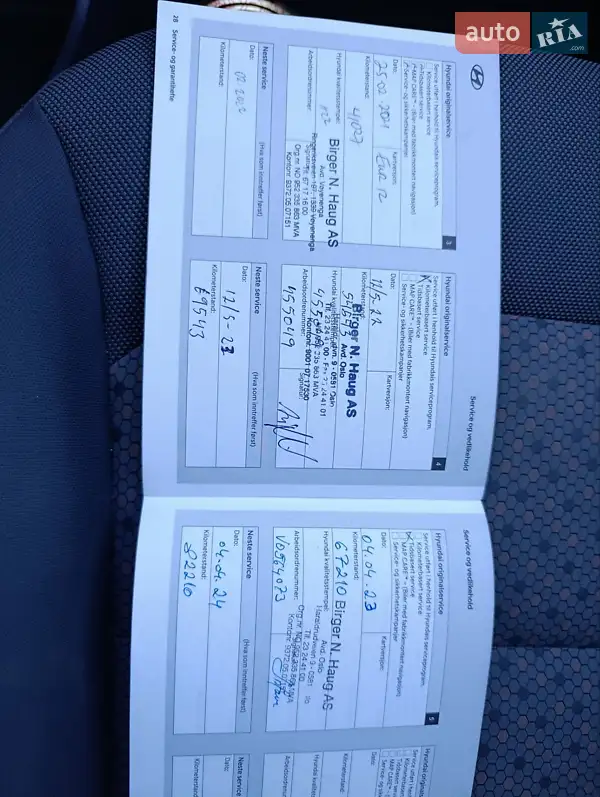 auto RIA .com
28 Service- og garantihefte
Hyundai originalservice
3
Service utført i henhold til Hyundais serviceprogram,
Kilometerbasert service
Tidsbasert service
MAP CARE™ - (Biler med fabrikkmontert navigasjon)
Service- og sikkerhetskampanjer
Dato:
25-02 2021
Kartversjon:
EUR 12
Kilometerstand:
41027
Hyundai kvalitetsstempel:
Birger N. Haug AS
Avd. Vøyenenga
Ringeriksveien 187 - 1339 Vøyenenga
Tlf. 67 17 16 00
Org.nr. NO 952 335 863 MVA
Kontonr. 9372.05.07151
Arbeidsordrenummer:
Neste service
(Hva som inntreffer først)
Dato:
Kilometerstand:
Service og vedlikehold
Hyundai originalservice
4
Service utført i henhold til Hyundais serviceprogram,
Kilometerbasert service
Tidsbasert service
MAP CARE™ - (Biler med fabrikkmontert navigasjon)
Service- og sikkerhetskampanjer
Dato:
11/5-22
Kartversjon:
Kilometerstand:
54543
Birger N. Haug AS
Avd. Oslo
Hyundai kvalitetsstempel:
Arbeidsordrenummer:
455049
Signatur:
Neste service
(Hva som inntreffer først)
Dato:
12/5-23
Kilometerstand:
69543
Service og vedlikehold
Hyundai originalservice
5
Service utført i henhold til Hyundais serviceprogram,
Kilometerbasert service
Tidsbasert service
MAP CARE™ - (Biler med fabrikkmontert navigasjon)
Service- og sikkerhetskampanjer
Dato:
04.04.23
Kartversjon:
Kilometerstand:
67210
Hyundai kvalitetsstempel:
Birger N. Haug AS
Avd. Oslo
Haraldrudveien 9 - 0581 Oslo
Tlf. 23 24 41 00
Org.nr. NO 952 335 863 MVA
Arbeidsordrenummer:
VO564073
Neste service
(Hva som inntreffer først)
Dato:
04.04.24
Kilometerstand:
82210
Hyundai
Service utført i h
Kilometerbase
Tidsbasert
MAP CARE™
Service- og
Dato:
Kilometerstand:
Hyundai kvalit
Arbeidsordrenu
Neste servic
Dato:
Kilometerstand: